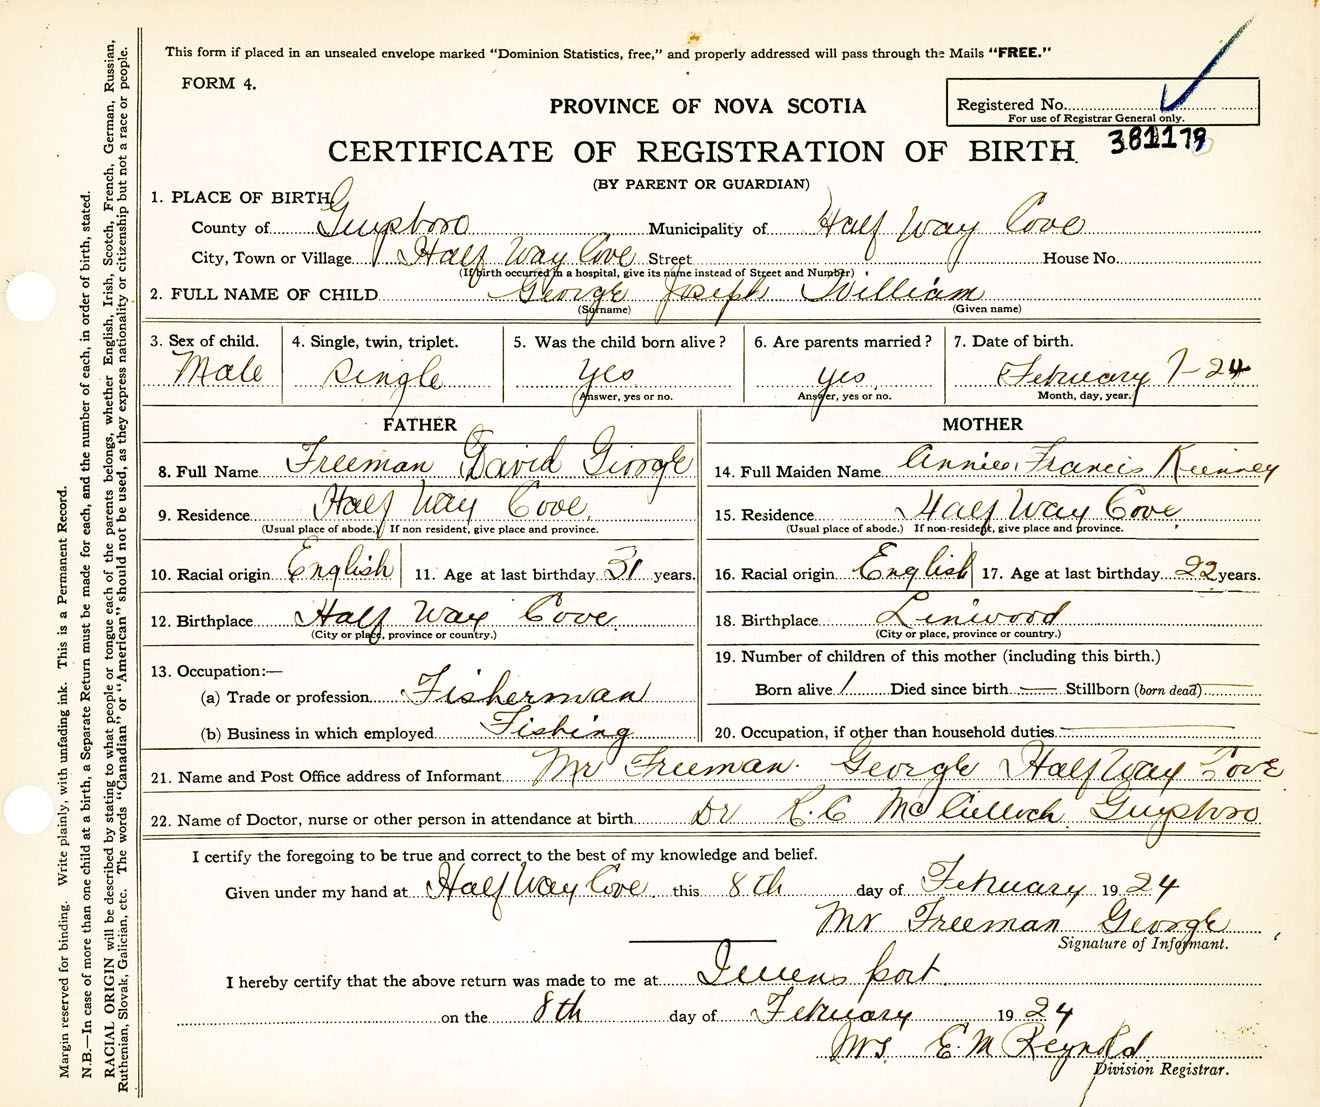 This form if placed in an unsealed envelope marked “Dominion Statistics, free,” and properly addressed will pass through the Mails “FREE.”
FORM 4.
PROVINCE OF NOVA SCOTIA
Registered No.
For use of Registrar General only.
381179
CERTIFICATE OF REGISTRATION OF BIRTH.
(BY PARENT OR GUARDIAN)
1. PLACE OF BIRTH
County of Guysboro Municipality of Half Way Cove
City, Town or Village Half Way Cove Street House No.
(If birth occurred in a hospital, give its name instead of Street and Number)
2. FULL NAME OF CHILD George Joseph William
(Surname) (Given name)
3. Sex of child. 4. Single, twin, triplet. 5. Was the child born alive? 6. Are parents married? 7. Date of birth.
Male Single yes yes February 7-24
Answer, yes or no. Answer, yes or no. Month, day, year.
FATHER MOTHER
8. Full Name Freeman David George 14. Full Maiden Name Annie Francis Keenney
9. Residence Half Way Cove. 15. Residence Half Way Cove
(Usual place of abode.) If non resident, give place and province. (Usual place of abode.) If non-resident, give place and province.
10. Racial origin English 11. Age at last birthday 31 years. 16. Racial origin English 17. Age at last birthday 22 years.
12. Birthplace Half Way Cove. 18. Birthplace Linwood
(City or place, province or country.) (City or place, province or country.)
13. Occupation:— 19. Number of children of this mother (including this birth.)
(a) Trade or profession Fisherman Born alive 1 Died since birth — Stillborn (born dead) —
(b) Business in which employed Fishing 20. Occupation, if other than household duties —
21. Name and Post Office address of Informant Mr Freeman George Half Way Cove
22. Name of Doctor, nurse or other person in attendance at birth Dr R.C McCulloch Guysboro
I certify the foregoing to be true and correct to the best of my knowledge and belief.
Given under my hand at Half Way Cove this 8th day of February 1924
Mr Freeman George
Signature of Informant.
I hereby certify that the above return was made to me at Queens port.
on the 8th day of February 1924
Mrs E.M Reynold
Division Registrar.
Margin reserved for binding. Write plainly, with unfading ink. This is a Permanent Record.
N.B.—In case of more than one child at a birth, a Separate Return must be made for each, and the number of each, in order of birth, stated.
RACIAL ORIGIN will be described by stating to what people or tongue each of the parents belongs, whether English, Irish, Scotch, French, German, Russian,
Ruthenian, Slovak, Galician, etc. The words “Canadian” or “American” should not be used, as they express nationality or citizenship but not a race or people.